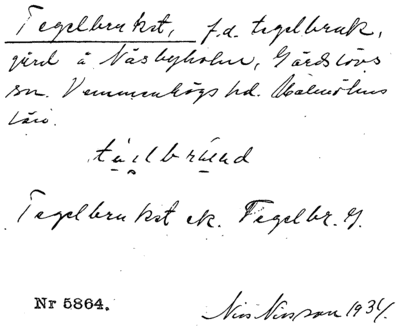 Tegelbruket, f.d. tegelbruk,
gård å Näsbyholm, Gärdslövs
sn. Vemmenhögs hd. Malmöhus
län.
Tegelbruket ek. Tegelbr. G.
Nr 5864.
Nils Nilsson 1934.